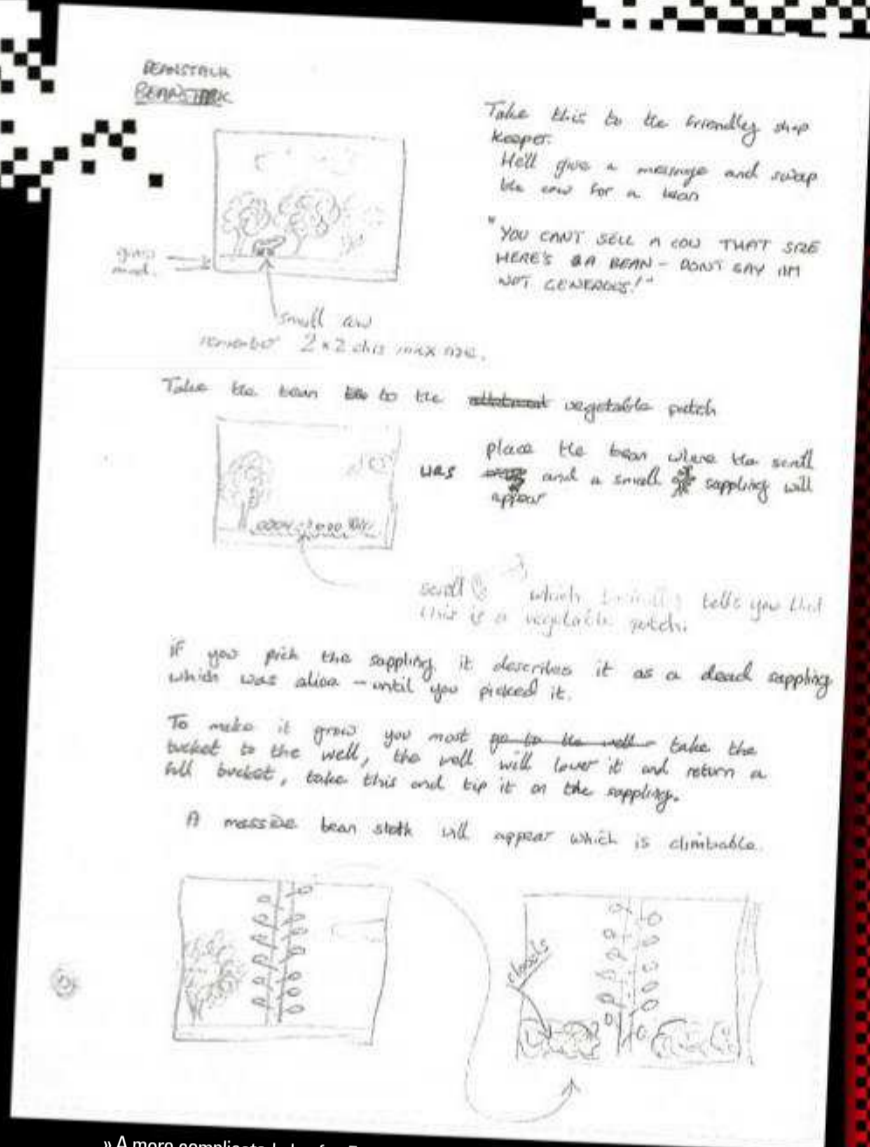 BEANSTALK
BEANSTALK
Take this to the friendly shop
keeper.
He'll give a message and swap
the cow for a bean
"YOU CANT SELL A COW THAT SIZE
HERE'S A BEAN - DON'T SAY IM
NOT GENEROUS!"
grass
mud.
small cow
remember 2x2 chrs max size.
Take the bean to the vegetable patch
place the bean where the scroll
was and a small sappling will
appear
scroll which tells you that
this is a vegetable patch.
if you pick the sappling it describes it as a dead sappling
which was alive - until you picked it.
To make it grow you most go to the well take the
bucket to the well, the well will lower it and return a
full bucket, take this and tip it on the sappling.
A massive bean stalk will appear which is climbable.
clouds
» A more complicated